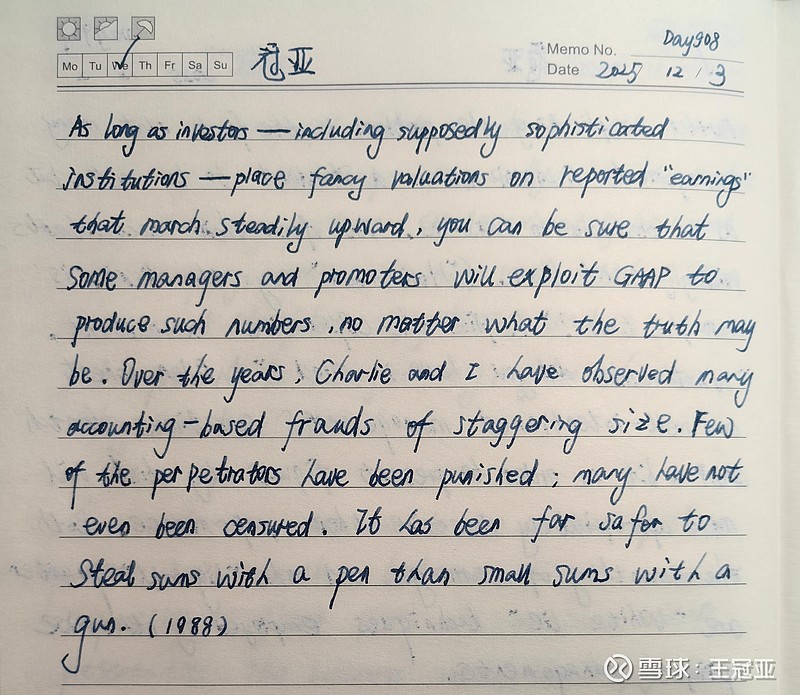 Mo Tu We Th Fr Sa Su
冠亚
Memo No. Day908
Date 2025 12 / 3
As long as investors — including supposedly sophisticated
institutions — place fancy valuations on reported "earnings"
that march steadily upward, you can be sure that
some managers and promoters will exploit GAAP to
produce such numbers, no matter what the truth may
be. Over the years, Charlie and I have observed many
accounting-based frauds of staggering size. Few
of the perpetrators have been punished; many have not
even been censured. It has been far safer to
steal sums with a pen than small sums with a
gun. (1988)
雪球：王冠亚